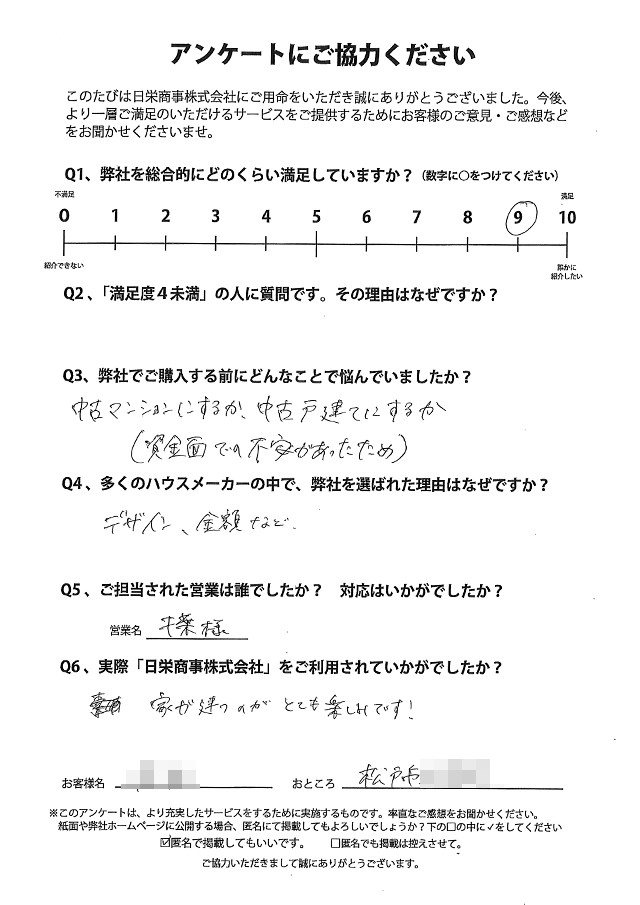 アンケートにご協力ください
このたびは日栄商事株式会社にご用命をいただき誠にありがとうございました。今後、
より一層ご満足のいただけるサービスをご提供するためにお客様のご意見・ご感想など
をお聞かせくださいませ。
Q1、弊社を総合的にどのくらい満足していますか？（数字に○をつけてください）
不満足 満足
0 1 2 3 4 5 6 7 8 9 10
紹介できない 誰かに
紹介したい
Q2、「満足度４未満」の人に質問です。その理由はなぜですか？
Q3、弊社でご購入する前にどんなことで悩んでいましたか？
中古マンションにするか、中古戸建てにするか
(資金面での不安があったため)
Q4、多くのハウスメーカーの中で、弊社を選ばれた理由はなぜですか？
デザイン、金額など.
Q5、ご担当された営業は誰でしたか？　対応はいかがでしたか？
営業名 千葉様
Q6、実際「日栄商事株式会社」をご利用されていかがでしたか？
家が建つのがとても楽しみです!
お客様名 おところ 松戸市
※このアンケートは、より充実したサービスをするために実施するものです。率直なご感想をお聞かせください。
紙面や弊社ホームページに公開する場合、匿名にて掲載してもよろしいでしょうか？下の□の中に✓をしてください
☑匿名で掲載してもいいです。 □匿名でも掲載は控えさせて。
ご協力いただきまして誠にありがとうございます。